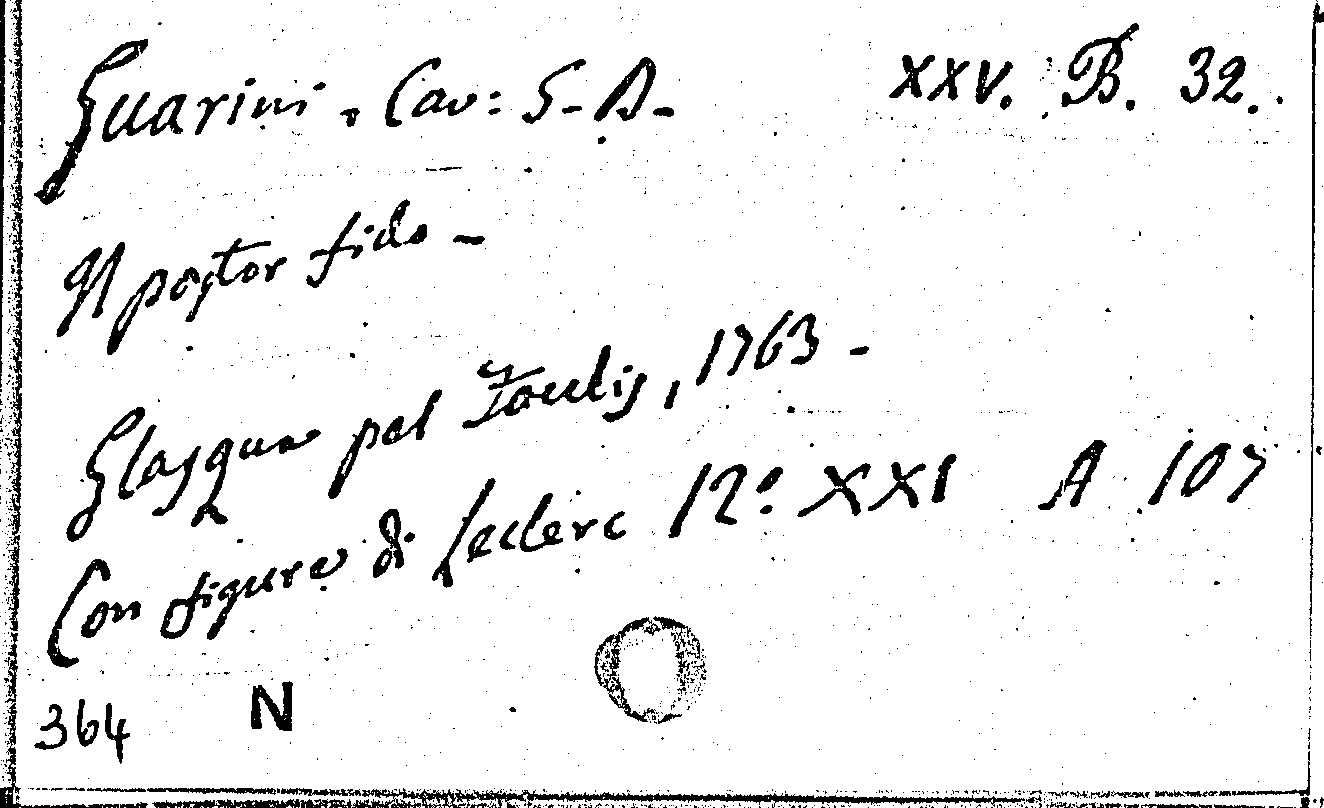 Guarini. Cav: G. B. XXV. B. 32.
Il pastor fido -
Glasgua pel Foulis, 1763 -
Con figure di Leclerc 12º XXI A 107
364 N